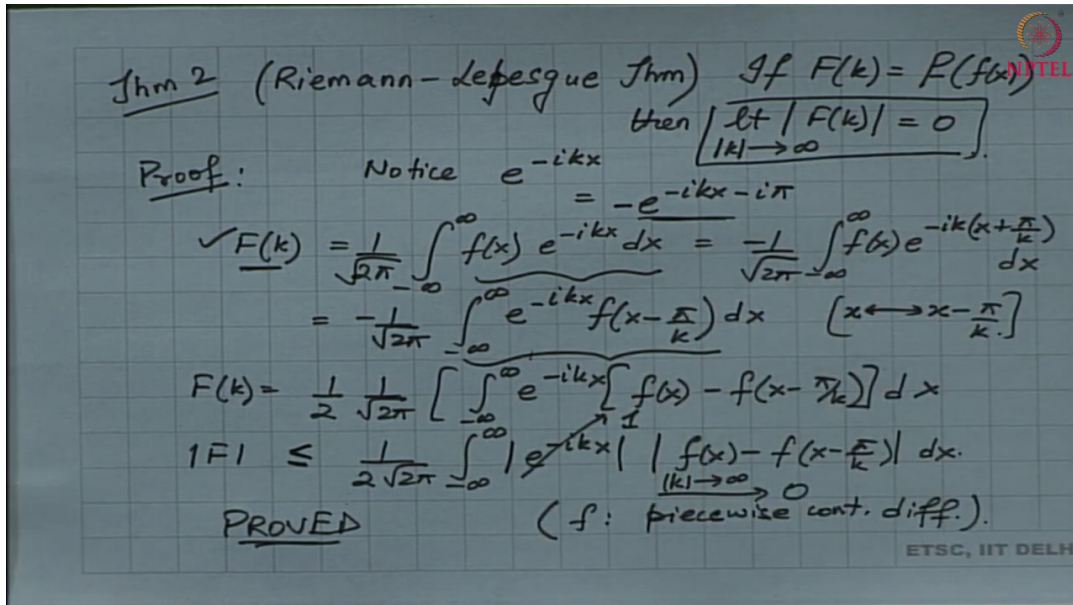 NPTEL
Thm 2 (Riemann-Lebesgue Thm) If F(k) = F(f(x))
then lt |F(k)| = 0
|k|→∞
Proof: Notice e^{-ikx}
= -e^{-ikx-iπ}
✓F(k) = 1/√2π ∫_{-∞}^{∞} f(x) e^{-ikx} dx = -1/√2π ∫_{-∞}^{∞} f(x) e^{-ik(x+π/k)} dx
= -1/√2π ∫_{-∞}^{∞} e^{-ikx} f(x-π/k) dx [x↔x-π/k.]
F(k) = 1/2 1/√2π [∫_{-∞}^{∞} e^{-ikx} [f(x) - f(x-π/k)] dx
|F| ≤ 1/2√2π ∫_{-∞}^{∞} |e^{-ikx}| 1 |f(x) - f(x-π/k)| dx.
|k|→∞ → 0
PROVED (f: piecewise cont. diff.).
ETSC, IIT DELH